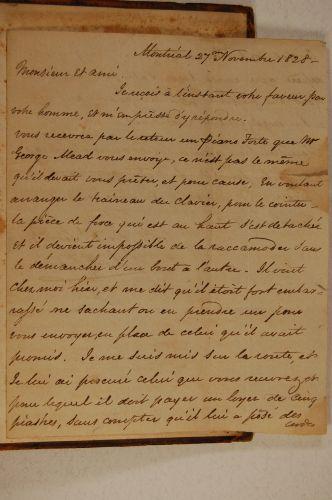 Montréal 27 Novembre 1828 -
Monsieur et ami,
Je reçois à l'instant votre faveur par
votre homme, et m'empresse d'y répondre.
Vous recevrez par le retour un Piano Forte que Mr
George Mead vous envoye, ce n'est pas le même
qu'il devait vous prêter, et pour cause, En voulant
arranger le traineau du clavier, pour le
la pièce de force qui est au haut s'est détachée
et il devient impossible de la raccamoder sans
le démancher d'un bout à l'autre - Il vint
chez moi hier, et me dit qu'il étoit fort embar-
rassé ne sachant ou en prendre un pour
vous envoyer en place de celui qu'il avait
promis. Je me suis mis sur la route, et
Je lui ai procuré celui que vous recevez et
pour lequel il doit payer un loyer de Cinq
piastres, sans compter qu'il lui a posé des
cordes